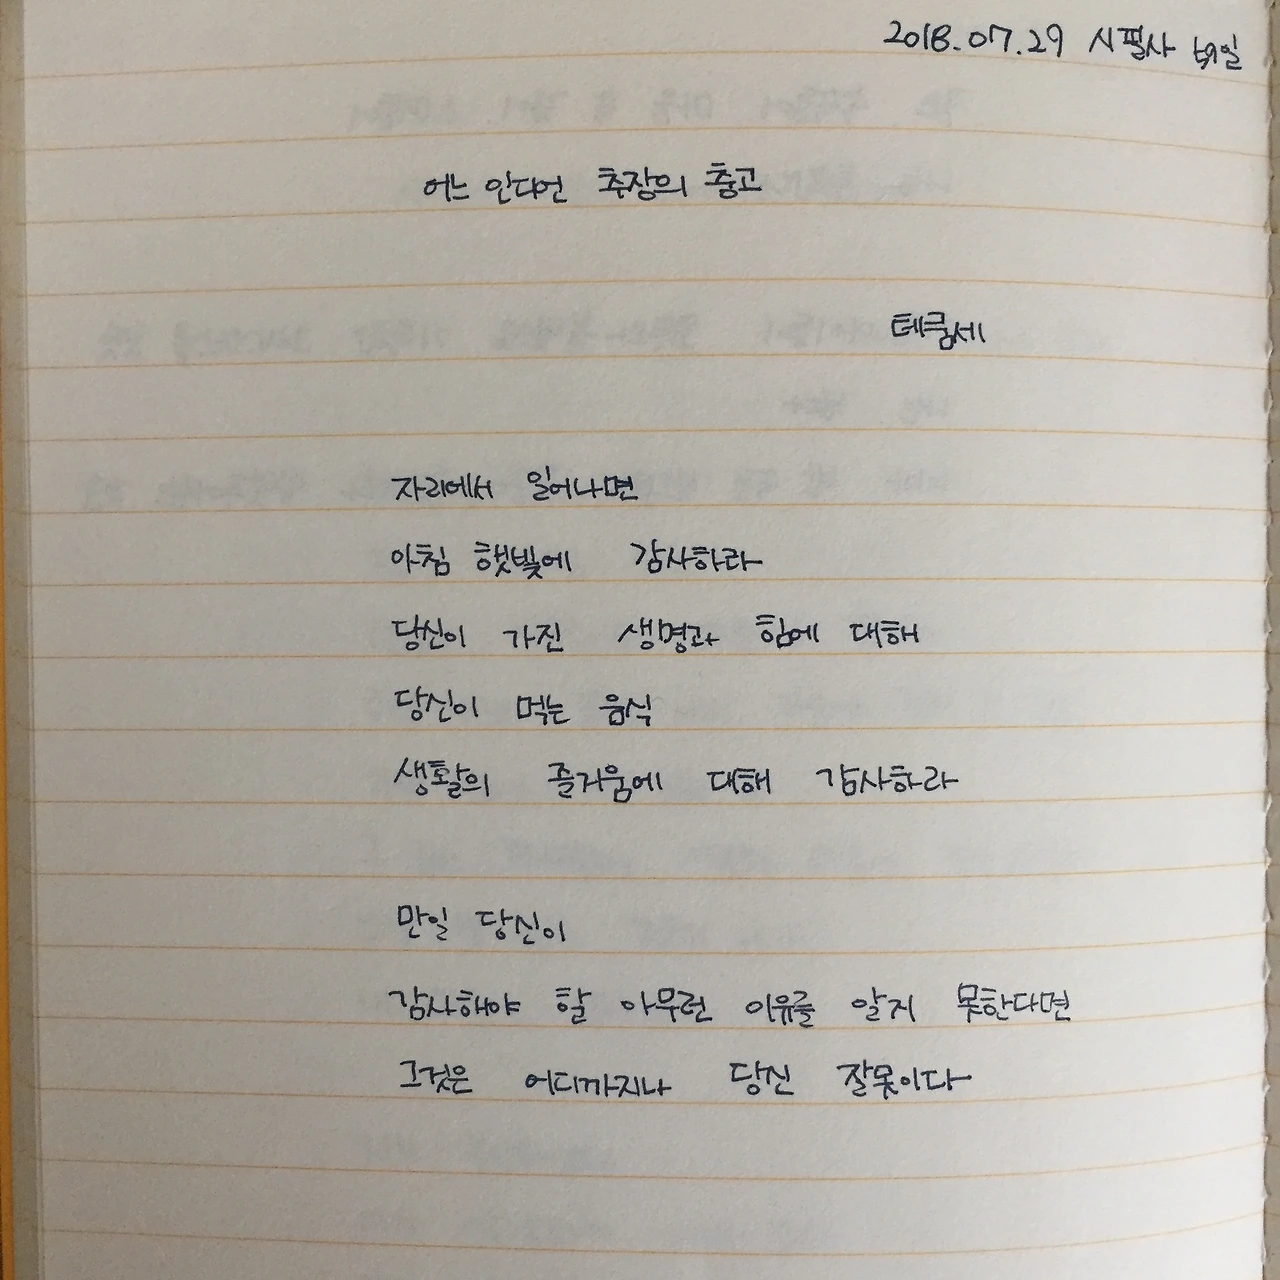 2018.07.29 시필사
어느 인디언 추장의 충고
테쿰세
자리에서 일어나면
아침 햇빛에 감사하라
당신이 가진 생명과 힘에 대해
당신이 먹는 음식
생활의 즐거움에 대해 감사하라
만일 당신이
감사해야 할 아무런 이유를 알지 못한다면
그것은 어디까지나 당신 잘못이다